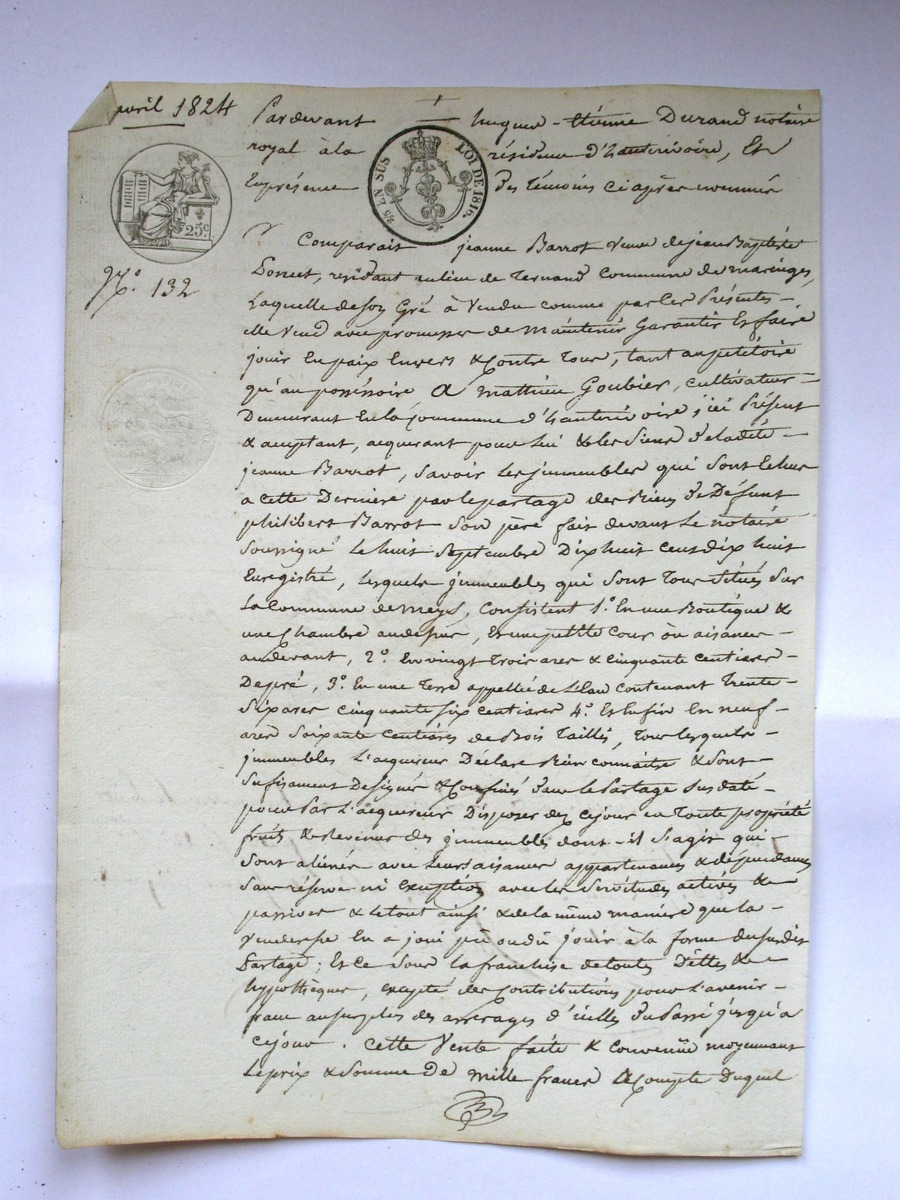 avril 1824
Pardevant hugues étienne Durand notaire
royal à la résidence d'hauterivoire, Et
En présence des témoins ci après nommés
25 EN SUS LOI DE 1816
25c.
N.o 132
Comparait jeanne Barrot veuve de jean Baptiste
résidant au lieu de Ternand Commune de maringes,
Laquelle de son Gré à vendu comme par les Présentes
elle vend avec promesse de maintenir Garantir Et faire
jouir En paix Envers & Contre Tous, tant au petitoire
qu'au possessoire a mathieu Goubier, cultivateur
Demeurant En la commune d'hauterivoire ici Présent
& acceptant, acquerant pour lui & les Siens de ladite
jeanne Barrot, savoir Les jmmeubles qui sont Echus
a cette Derniere par le partage des Biens de Défunt
philibert Barrot son père fait devant Le notaire
soussigné Le huit Septembre Dix huit cent dix huit
Enregistré, lesquels jmmeubles qui sont Tous situés sur
La Commune de meys, consistent 1.o En une Boutique &
une Chambre au dessus, Et une petite cour ou aisances
au devant, 2.o En vingt Trois ares & cinquante centiares
De pré, 3.o En une Terre appellée de contenant Trente
Six ares cinquante six centiares 4.o Et Enfin En neuf
ares Soixante centiares de Bois Taillis, Tous lesquels
jmmeubles L'acquereur Déclare Bien connaitre & sont
sufisament Designés & Confinés dans le Partage susdaté
pour Par L'acquereur Disposer des ce jour en Toute propriété
fruits & Revenus des jmmeubles dont il s'agit qui
sont aliénés avec Leurs aisances appartenances & dépendances
sans réserve ni exception avec les servitudes actives &
passives & le tout ainsi & de la même manière que la
venderesse En a joui pu ou dû jouir à la forme du susdit
Partage; Et ce sous la franchise de toutes Dettes &
hypothèques, excepté des Contributions pour L'avenir
franc au surplus des arrerages d'icelles du Passé jusqu'a
ce jour. Cette Vente faite & convenue moyennant
Le prix & somme De mille francs à Compte Duquel